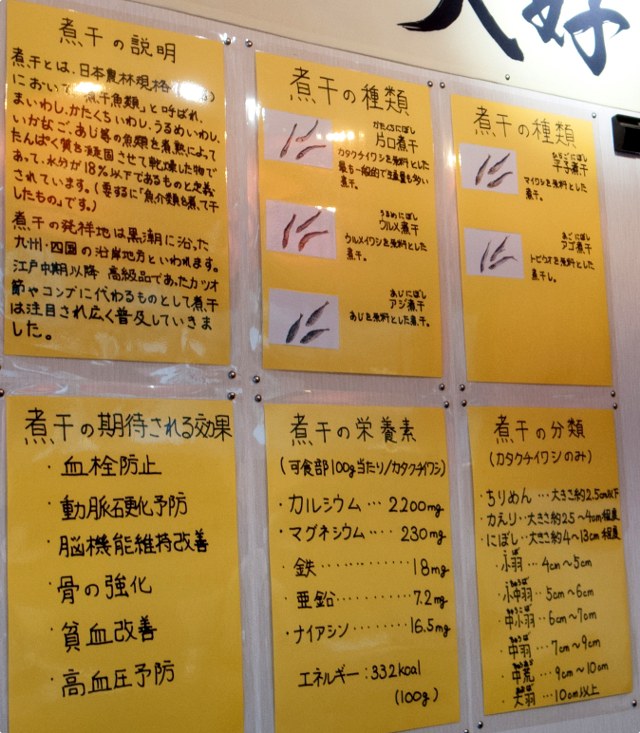 大好
煮干の説明
煮干とは、日本農林規格(
において「煮干魚類」と呼ばれ、
まいわし、かたくちいわし、うるめいわし、
いかなご、あじ等の魚類を煮熟によって
たんぱく質を凝固させて乾燥した物で
あって、水分が18%以下であるものと定義
されています。(要するに『魚介類を煮て干
したもの』です。)
煮干の発祥地は黒潮に沿った
九州・四国の沿岸地方といわれます。
江戸中期以降 高級品であったカツオ
節やコンブに代わるものとして煮干
は注目され広く普及していきま
した。
煮干の種類
かたくちにぼし
片口煮干
カタクチイワシを原料とした
最も一般的で生産量も多い
煮干。
うるめにぼし
ウルメ煮干
ウルメイワシを原料とした
煮干。
あじにぼし
アジ煮干
あじを原料とした煮干。
煮干の種類
ひらごにぼし
平子煮干
マイワシを原料とした
煮干。
あごにぼし
アゴ煮干
トビウオを原料とした
煮干し。
煮干の期待される効果
・血栓防止
・動脈硬化予防
・脳機能維持改善
・骨の強化
・貧血改善
・高血圧予防
煮干の栄養素
(可食部100g当たり/カタクチイワシ)
・カルシウム…2200mg
・マグネシウム…230mg
・鉄………18mg
・亜鉛………7.2mg
・ナイアシン……16.5mg
エネルギー:332kcal
(100g)
煮干の分類
(カタクチイワシのみ)
・ちりめん…大きさ約2.5cm以下
・かえり…大きさ約2.5~4cm程度
・にぼし…大きさ約4~13cm程度
・小羽…4cm~5cm
・小中羽…5cm~6cm
・中小羽…6cm~7cm
・中羽…7cm~9cm
・中荒…9cm~10cm
・大羽…10cm以上